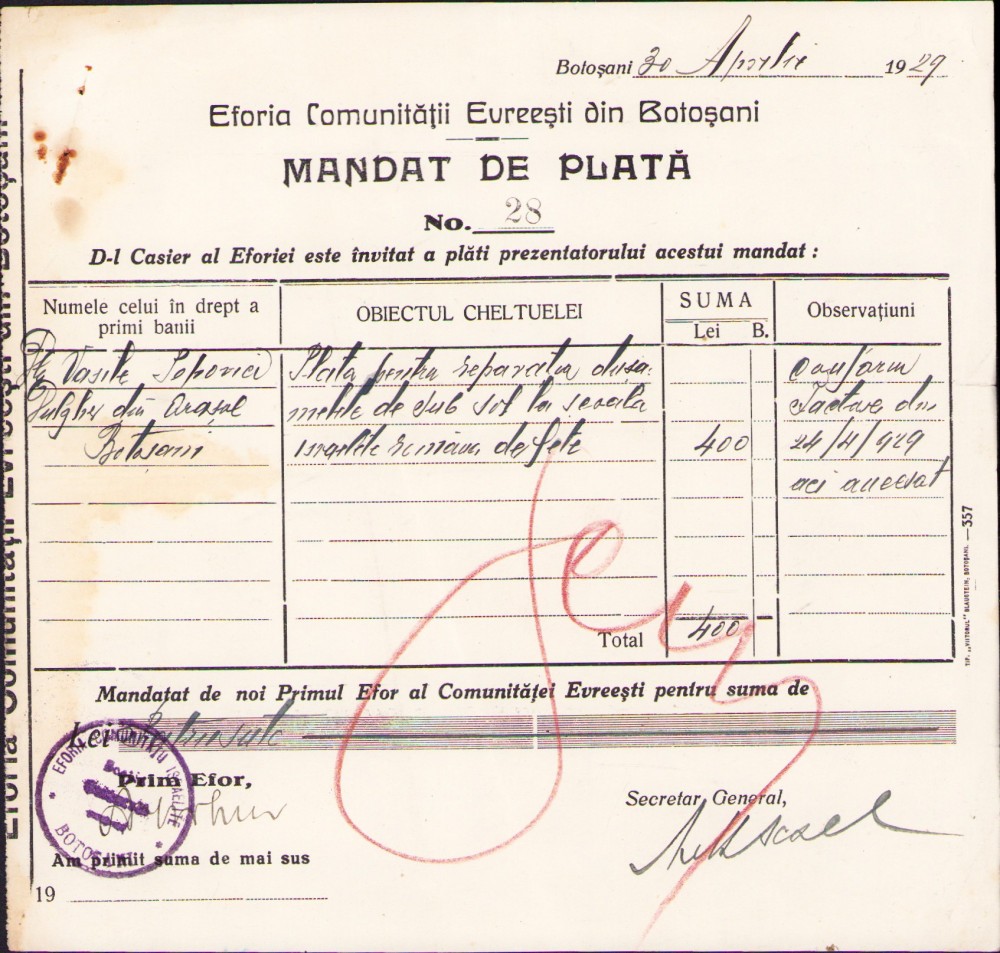 Botoșani 30 Aprilie 1929
Eforia Comunității Evreești din Botoșani
MANDAT DE PLATĂ
No. 28
D-l Casier al Eforiei este învitat a plăti prezentatorului acestui mandat :
Numele celui în drept a primi banii
OBIECTUL CHELTUELEI
SUMA
Lei B.
Observațiuni
Vasile Popovici
din orașul
Botosani
Plata pentru reparatia dușa-
melile de sub sol la scoala
israelite româna de fete
400
conform
facturei din
24/4/929
aci anexat
Total 400
Mandatat de noi Primul Efor al Comunităței Evreești pentru suma de
Lei Patru sute
Prim Efor,
Secretar General,
Am primit suma de mai sus
19
EFORIA COMUNITĂȚII ISRAELITE
BOTOȘANI
TIP. „VIITORUL" BLAUSTEIN, BOTOȘANI. —357
Eforia Comunității Evreești din Botoșani